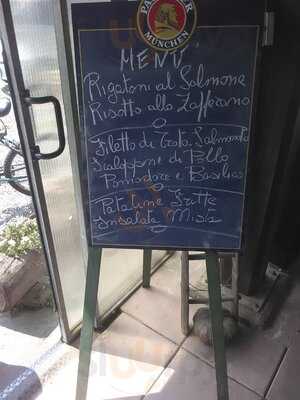 PAULANER
MÜNCHEN
MENU
Rigatoni al Salmone
Risotto allo Zafferano
Filetto di Trota Salmonata
Scaloppine di Pollo
Pomodoro e Basilico
Patatine Fritte
Insalata Mista